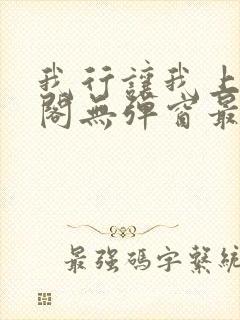 我行讓我上
閣無彈窗最
最強碼字繫統